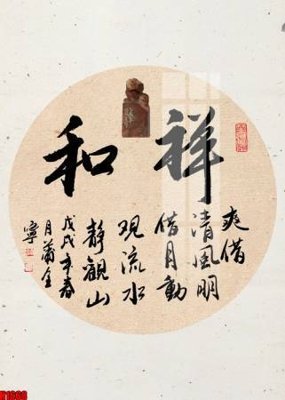 祥和
爽借
清风明
借月動
观流水
静観山
戊戌年春
月萧全
寧